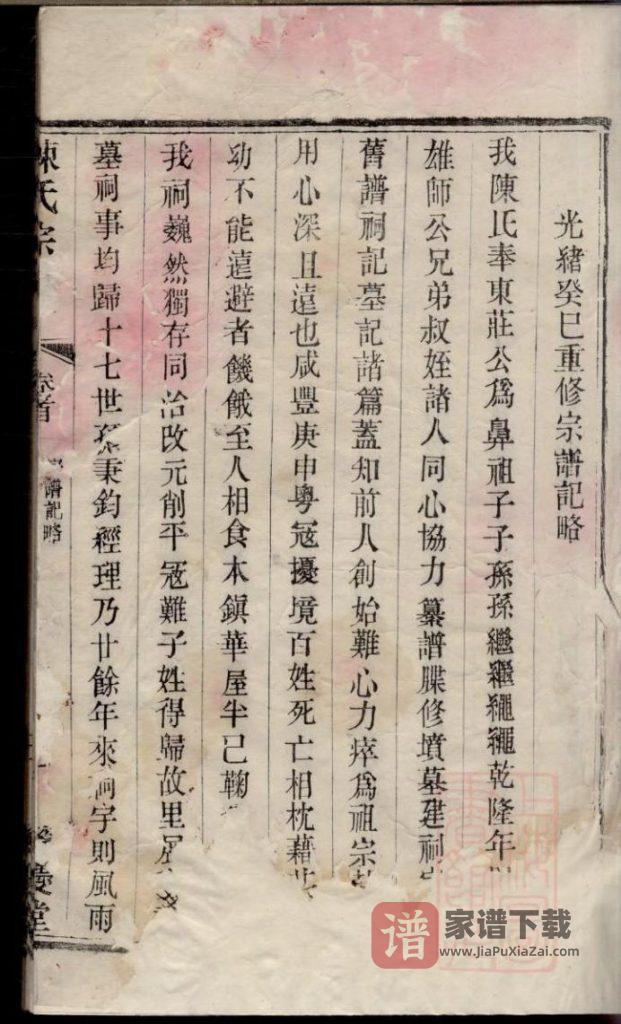 光緒癸巳重修宗譜記略
我陳氏奉東莊公爲鼻祖子子孫孫繼繼繩繩乾隆年
雄師公兄弟叔姪諸人同心協力纂譜牒修墳墓建祠
舊譜祠記墓記諸篇蓋知前人創始難心力瘁爲祖宗
用心深且遠也咸豐庚申粵寇擾境百姓死亡相枕藉
幼不能遠避者饑餓至人相食本鎭華屋半已鞠
我祠巍然獨存同治改元削平寇難子姓得歸故里
墓祠事均歸十七世孫秉鈞經理乃廿餘年來祠宇則風雨
陳氏宗
卷首
譜記略
堂
谱 家谱下载
www.JiaPuXiaZai.com